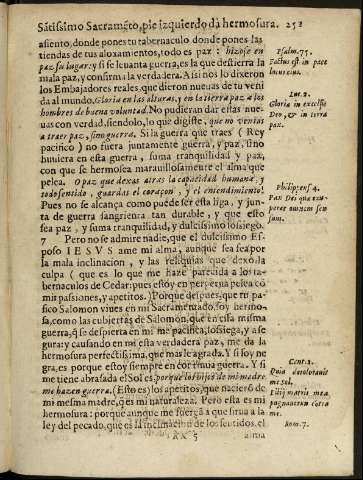 Sãtissimo Sacramẽto, pie izquierdo dà hermosura. 251
asiento, donde pones tu tabernaculo donde pones las
tiendas de tus aloxamientos, todo es paz: hizose en
paz su lugar: y si se leuanta guerra, es la que destierra la
mala paz, y confirma la verdadera. Assi nos lo dixeron
los Embajadores reales, que dieron nueuas de tu veni
da al mundo, Gloria en las alturas, y en la tierra paz a los
hombres de buena voluntad. No pudieran dar ellas nue
uas con verdad, siendolo, lo que digiste, que no venias
a traer paz, sino guerra. Si la guerra que traes (Rey
pacifico) no fuera juntamente guerra, y paz, sino
huuiera en esta guerra, suma tranquilidad y paz,
con que se hermosea marauillosamente el alma que
pelea. O paz que dexas atras la capacidad humana, y
todo sentido, guardas el coraçon, y el entendimiento!
Pues no se alcança como puede ser esta liga, y jun-
ta de guerra sangrienta tan durable, y que esto
sea paz, y suma tranquilidad, y dulcissimo sossiego.
7 Pero no se admire nadie, que el dulcissimo Es-
poso IESVS ame mi alma, aunque sea fea por
la mala inclinacion, y las reliquias que dexò la
culpa (que es lo que me haze parecida a los ta-
bernaculos de Cedar: pues estoy en perpetua pelea cõ
mis passiones, y apetitos.) Porque despues, que tu pa-
cifico Salomon vienes en mi Sacramentado, soy hermo-
sa, como las cubiertas de Salomon, que en esta misma
guerra, q̃ se despierta en mi me pacifica, sossiega, y ase
gura: y causando en mi esta verdadera paz, me da la
hermosura perfectissima, que mas le agrada. Y si soy ne
gra, es porque estoy siempre en continua guerra. Y si
me tiene abrasada el Sol es, porque los hijos de mi madre
me hazen guerra. (Esto es) los apetitos, que nacierõ de
mi mesma madre, q̃ es mi naturaleza. Pero esta es mi
hermosura: porque aunque me fuerça a que sirua a la
ley del pecado, que es la inclinacion de los sentidos, el
alma
Psalm. 75.
Factus est in pace
locus eius.
Luc. 2.
Gloria in excelsis
Deo, & in terra
pax.
Philip. 4.
Pax Dei qua exu-
perat omnem sen
sum.
Cant. 1.
Quia decolorauit
me Sol.
Filij matris mea
pugnauerunt cõtra
me.
Rom. 7.